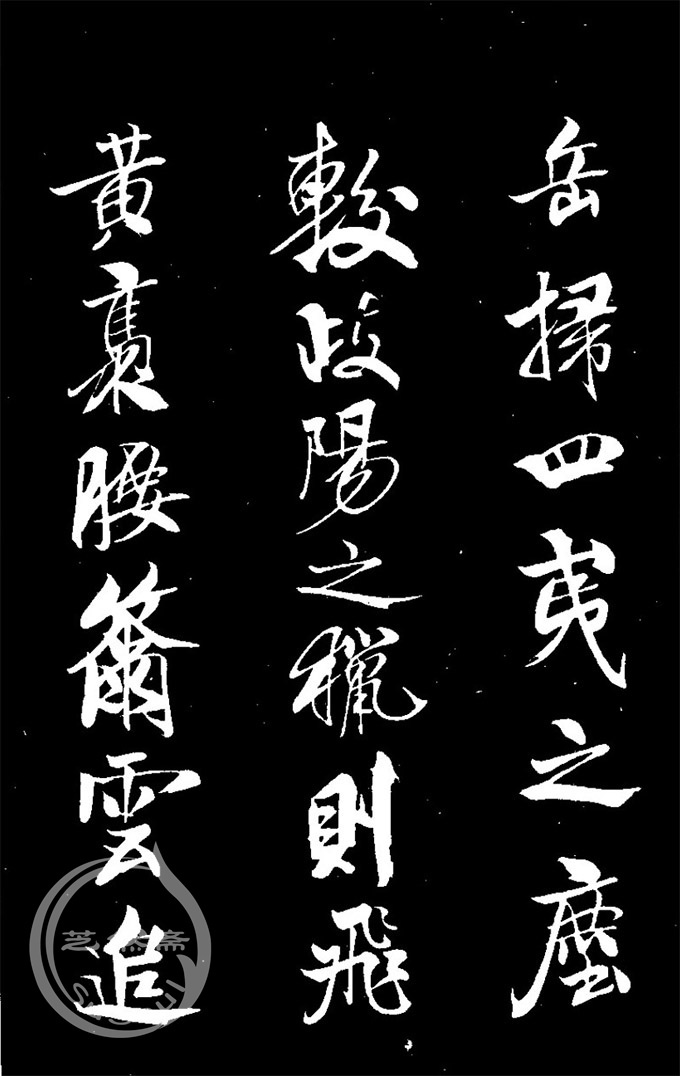 岳掃四夷之塵
較岐陽之獵則飛
黃褭腰籋雲追